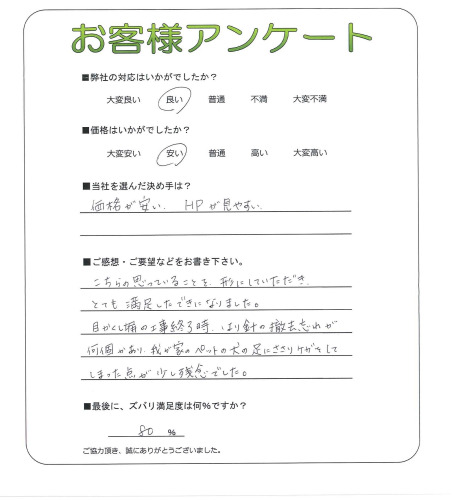 お客様アンケート
■弊社の対応はいかがでしたか？
大変良い 良い 普通 不満 大変不満
■価格はいかがでしたか？
大変安い 安い 普通 高い 大変高い
■当社を選んだ決め手は？
価格が安い。 HPが見やすい。
■ご感想・ご要望などをお書き下さい。
こちらの思っていることを、形にしていただき、
とても満足したできになりました。
目かくし塀の工事終了時、はり針の撤去忘れが
何個かあり、我が家のペットの犬の足にささりケガをして
しまった点が少し残念でした。
■最後に、ズバリ満足度は何%ですか？
80 %
ご協力頂き、誠にありがとうございました。